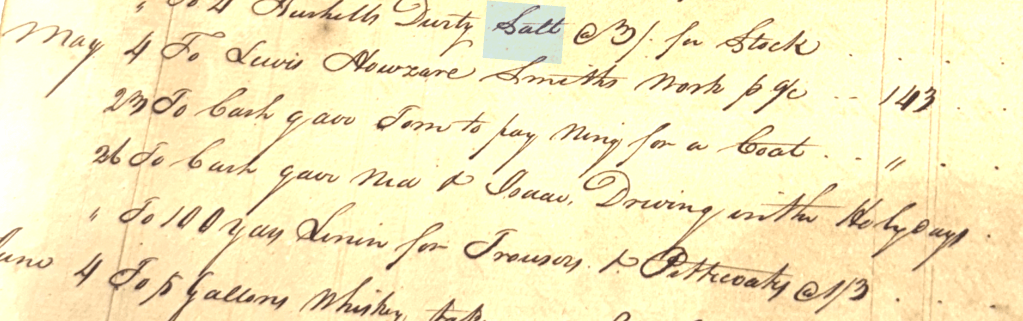 " To 4 Bushells Durty Salt @ 3/. for Stock
May 4 To Lewis Howzare Smiths Work p a/c 143
23 To Cash gave Tom to pay Ning for a Coat "
26 To Cash gave Ned & Isaac, Driving in the Holydays
" To 100 yas Linin for Trousers & Petticoats @ 1/3
June 4 To 5 Gallons Whiskey